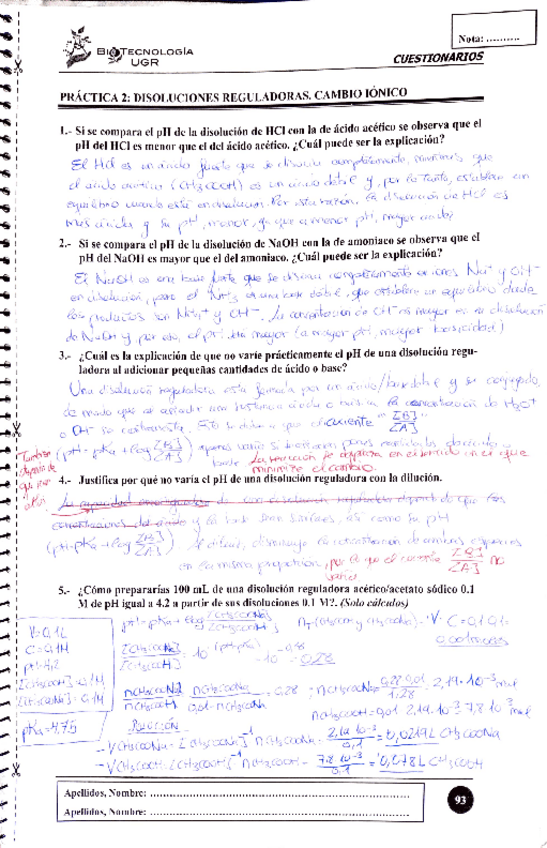 Nota: ..........
BIOTECNOLOGÍA
UGR
CUESTIONARIOS
PRÁCTICA 2: DISOLUCIONES REGULADORAS. CAMBIO IÓNICO
1.- Si se compara el pH de la disolución de HCl con la de ácido acético se observa que el
pH del HCl es menor que el del ácido acético. ¿Cuál puede ser la explicación?
El HCl es un ácido fuerte que se disocia completamente, mientras que
el ácido acético (CH3COOH) es un ácido débil y, por lo tanto, establece un
equilibrio cuando está en disolución. Por esta razón, la disolución de HCl es
más ácida y su pH, menor, ya que a menor pH, mayor acidez
2.- Si se compara el pH de la disolución de NaOH con la de amoniaco se observa que el
pH del NaOH es mayor que el del amoniaco. ¿Cuál puede ser la explicación?
El NaOH es una base fuerte que se disocia completamente en iones Na+ y OH-
en disolución, pero el NH3 es una base débil, que establece un equilibrio donde
los productos son NH4+ y OH-. La concentración de OH- es mayor en la disolución
de NaOH y por eso, el pH es mayor (a mayor pH, mayor basicidad)
3.- ¿Cuál es la explicación de que no varíe prácticamente el pH de una disolución regu-
ladora al adicionar pequeñas cantidades de ácido o base?
Una disolución reguladora está formada por un ácido/base débil y su conjugado,
de modo que al añadir una sustancia ácida o básica la concentración de H3O+
o OH- se contrarresta. Esto se debe a que el cociente "[B]/[A]"
(pH = pKa + log [B]/[A]) apenas varía si
base. La reacción se desplaza en el sentido en el que
minimize el cambio.
También
depende de
que
4.- Justifica por qué no varía el pH de una disolución reguladora con la dilución.
y la base sean similares, así como su pH
(pH = pKa + log [B]/[A]) Al diluir, disminuye la concentración de ambas especies
en la misma proporción, por lo que el cociente [B]/[A] no
varía.
5.- ¿Cómo prepararías 100 mL de una disolución reguladora acético/acetato sódico 0.1
M de pH igual a 4.2 a partir de sus disoluciones 0.1 M?. (Solo cálculos)
V = 0,1 L
C = 0,1 M
pH = 4,2
[CH3COOH] = 0,1M
[CH3COONa] = 0,1M
pKa = 4,75
pH = pKa + log [CH3COONa]/[CH3COOH]
[CH3COONa]/[CH3COOH] = 10 (pH-pKa) = 10 = 0,28
nCH3COONa/nCH3COOH
nCH3COONa/0,01-nCH3COONa = 0,28
= 2,19·10-3 mol
nCH3COOH = 0,01 - 2,19·10-3 = 7,8·10-3 mol
- VCH3COONa = [CH3COONa]-1 nCH3COONa = 2,19·10-3/0,1 = 0,0219 L CH3COONa
- VCH3COOH = [CH3COOH]-1 nCH3COOH = 7,8·10-3/0,1 = 0,078 L CH3COOH
Apellidos, Nombre: ..........
Apellidos, Nombre: ..........
93